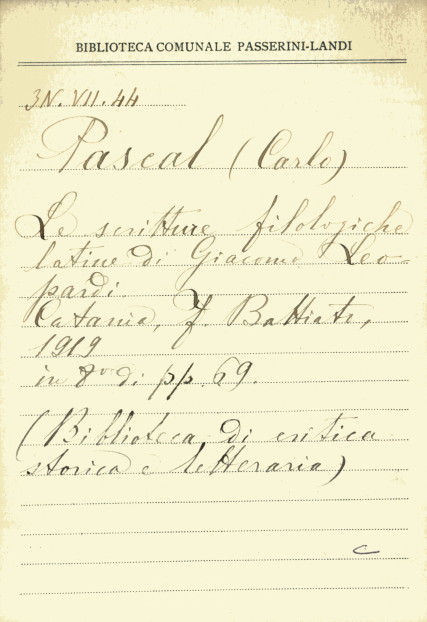 BIBLIOTECA COMUNALE PASSERINI-LANDI
3N. VII. 44
Pascal (Carlo)
Le scritture filologiche
latine di Giacomo Leo-
pardi.
Catania, F. Battiato,
1919
in 8vo di pp. 69.
(Biblioteca di critica
storica e letteraria)
C